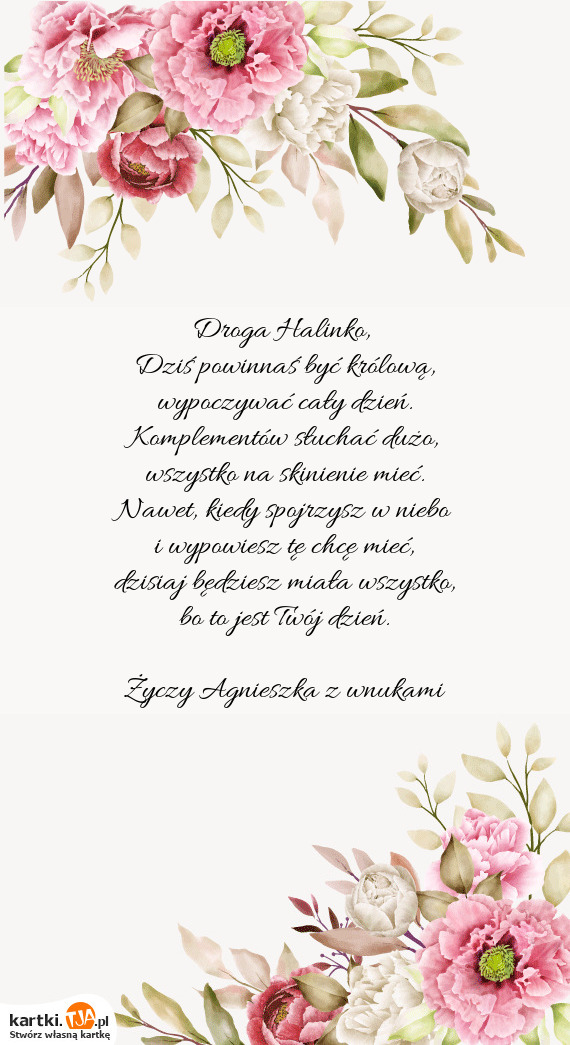 Droga Halinko,
Dziś powinnaś być królową,
wypoczywać cały dzień.
Komplementów słuchać dużo,
wszystko na skinienie mieć.
Nawet, kiedy spojrzysz w niebo
i wypowiesz tę chcę mieć,
dzisiaj będziesz miała wszystko,
bo to jest Twój dzień.
Życzy Agnieszka z wnukami
kartki.TJA.pl
Stwórz własną kartkę